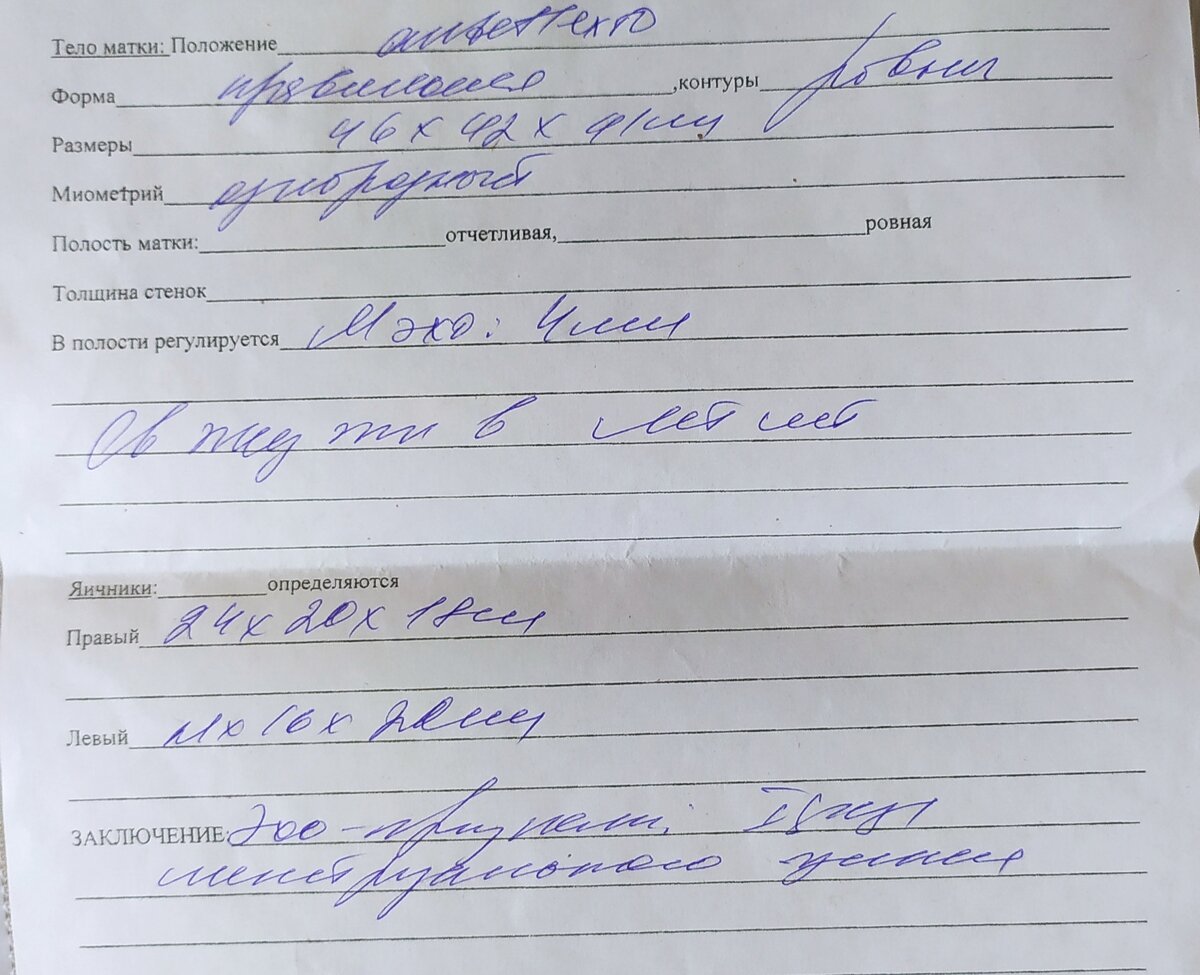 Тело матки: Положение anteflexio
Форма правильная ,контуры ровные
Размеры 46 х 42 х 41мм
Миометрий однородный
Полость матки: отчетливая, ровная
Толщина стенок
В полости регулируется М эхо: 4мм
в
Яичники: определяются
Правый 24 х 20 х 18мм
Левый х 16 х 20мм
ЗАКЛЮЧЕНИЕ: Эхо-признаки: I фазы
менструального цикла